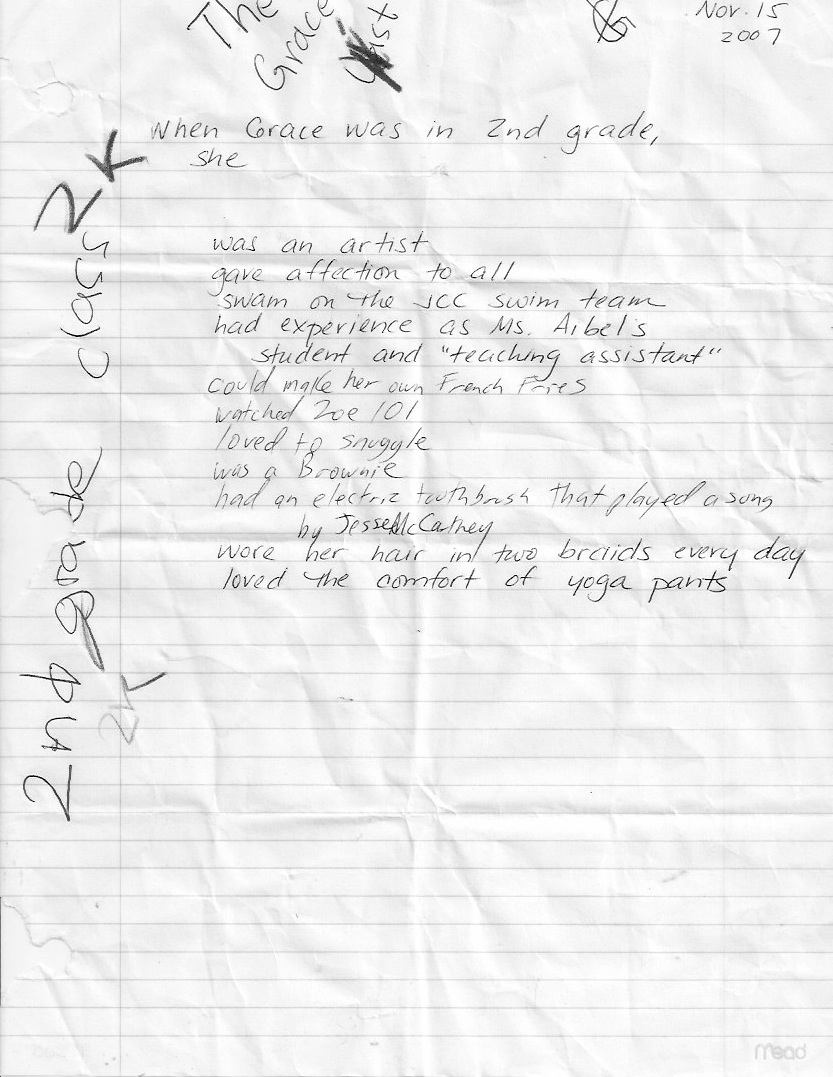 The
Grace
List
Nov. 15
2007
When Grace was in 2nd grade,
she
was an artist
gave affection to all
swam on the JCC swim team
had experience as Ms. Aibel's
student and "teaching assistant"
could make her own French Fries
watched Zoe 101
loved to snuggle
was a Brownie
had an electric toothbrush that played a song
by Jesse McCathey
wore her hair in two braids every day
loved the comfort of yoga pants
2nd grade class 2K
2K
mead